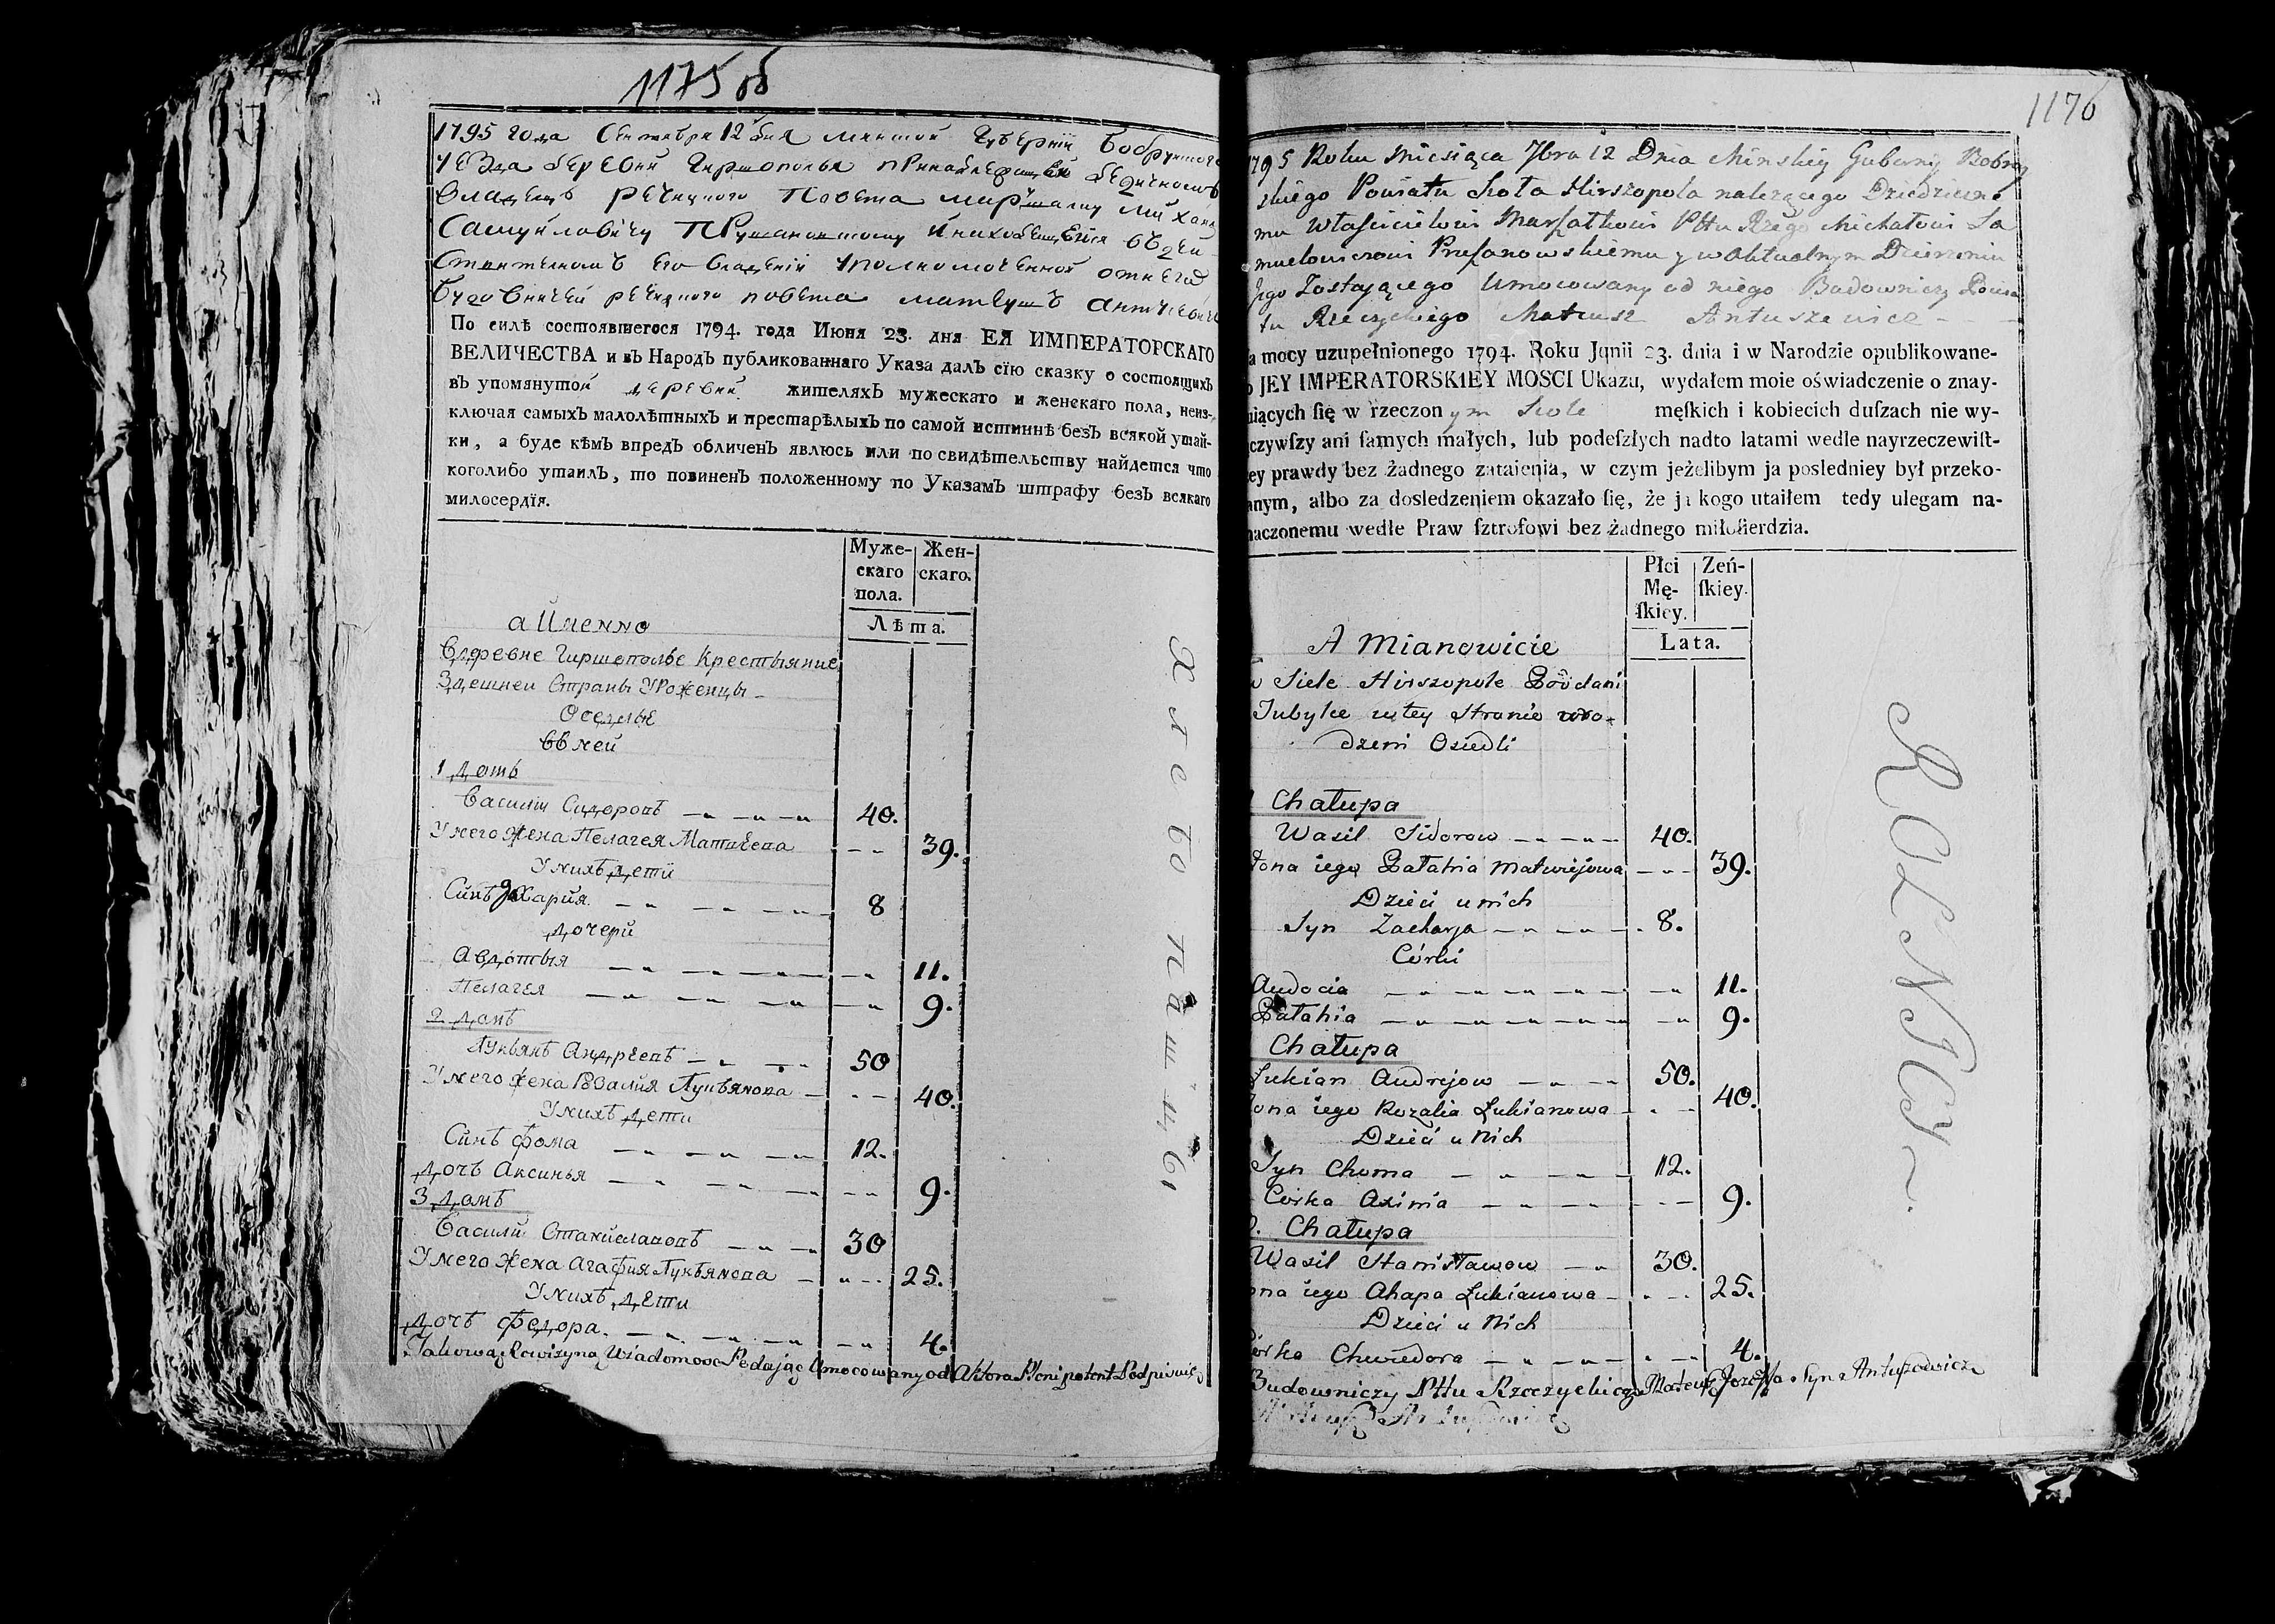 1175 об
1795 года Сентября 12 дня Минской Губернии Бобруйского
уезда деревни Гиршополья принадлежащей
владельцу Речицкого Повета Маршалку Михаилу
Самуйловичу Прушановскому и находящейся въ дей-
ствительномъ его владении уполномоченной отнего
будовничей речицкого повета Матеушъ Антушевичъ
По силѣ состоявшегося 1794. года Июня 23. дня ЕЯ ИМПЕРАТОРСКАГО
ВЕЛИЧЕСТВА и въ Народъ публикованнаго Указа далъ сїю сказку о состоящихъ
въ упомянутой деревни жителяхъ мужескаго и женскаго пола, неиз-
ключая самыхъ малолѣтныхъ и престарѣлыхъ по самой истиннѣ безъ всякой утай-
ки, а буде кѣмъ впредъ обличенъ явлюсь или по свидѣтельству найдется что
коголибо утаилъ, то повиненъ положенному по Указамъ штрафу безъ всякаго
милосердїя.
Муже- Жен-
скаго скаго.
пола.
Лѣта.
а Именно
Вдеревне Гиршополье Крестьяние
Здешней Страны Уроженцы
Оседлые
ввней
1 домъ
Василий Сидоровъ 40.
Унего жена Пелагея Матвеева 39.
Унихъ дети
Синъ Захария 8
дочери
Авдотья 11.
Пелагея 9.
2 домъ
Лукьянъ Андреевъ 50
Унего жена Розалия Лукьянова 40.
Унихъ дети
Синъ Фома 12.
дочъ Аксинья 9.
3 домъ
Василий Станиславовъ 30
Унего жена Агафия Лукьянова 25.
Унихъ дети
Дочъ Федора. 4.
Хлебо пашцы
Takową Rewizyną Wiadomość Podaiąc Umocowany od Aktora Plenipotent Podpisuię
1176
1795 Roku Miesiąca 7bra 12 Dnia Minskiey Gubernij Bobruy
skiego Powiatu Sioła Hirszopola należącego Dziedziczne
mu Właścicielowi Marszałkowi Pttu Rzego Michałowi Sa
muelowiczowi Pruszanowskiemu y w Aktualnym Dzierżeniu
Jego Zostaiącego Umocowany od niego Budowniczy Powia
tu Rzeczyckiego Mateusz Antuszewicz
a mocy uzupełnionego 1794. Roku Junii 23. dnia i w Narodzie opublikowane-
o JEY IMPERATORSKIEY MOSCI Ukazu, wydałem moie oświadczenie o znay-
uiących ſię w rzeczonym Siole męſkich i kobiecich duſzach nie wy-
czywſzy ani ſamych małych, lub podeſzłych nadto latami wedle nayrzeczewiſt-
ey prawdy bez żadnego zataienia, w czym jeżelibym ja posledniey był przeko-
anym, albo za dosledzeniem okazało ſię, że ja kogo utaiłem tedy ulegam na-
naczonemu wedle Praw ſztrofowi bez żadnego miłoſierdzia.
Płci Zeń-
Mę- ſkiey.
ſkiey.
Lata.
A Mianowicie
w Siele Hirszopole Poddani
Tubylce w tey Stronie uro-
dzeni Osiedli
1 Chałupa
Wasil Sidorow 40.
Żona iego Pałahia Matwiejowa 39.
Dzieci u nich
Syn Zacharja 8.
Córki
Audocia 11.
Pałahia 9.
Chałupa
Łukian Andrejow 50.
Żona iego Rozalia Łukianowa 40.
Dzieci u Nich
Syn Choma 12.
Córka Axinia 9.
3. Chałupa
Wasil Stanisławow 30.
Żona iego Ahapa Łukianowa 25.
Dzieci u Nich
Córka Chwiedora 4.
ROLNICY
Budowniczy Pttu Rzeczyckiego Mateusz Jozefa Syn Antuszewicz